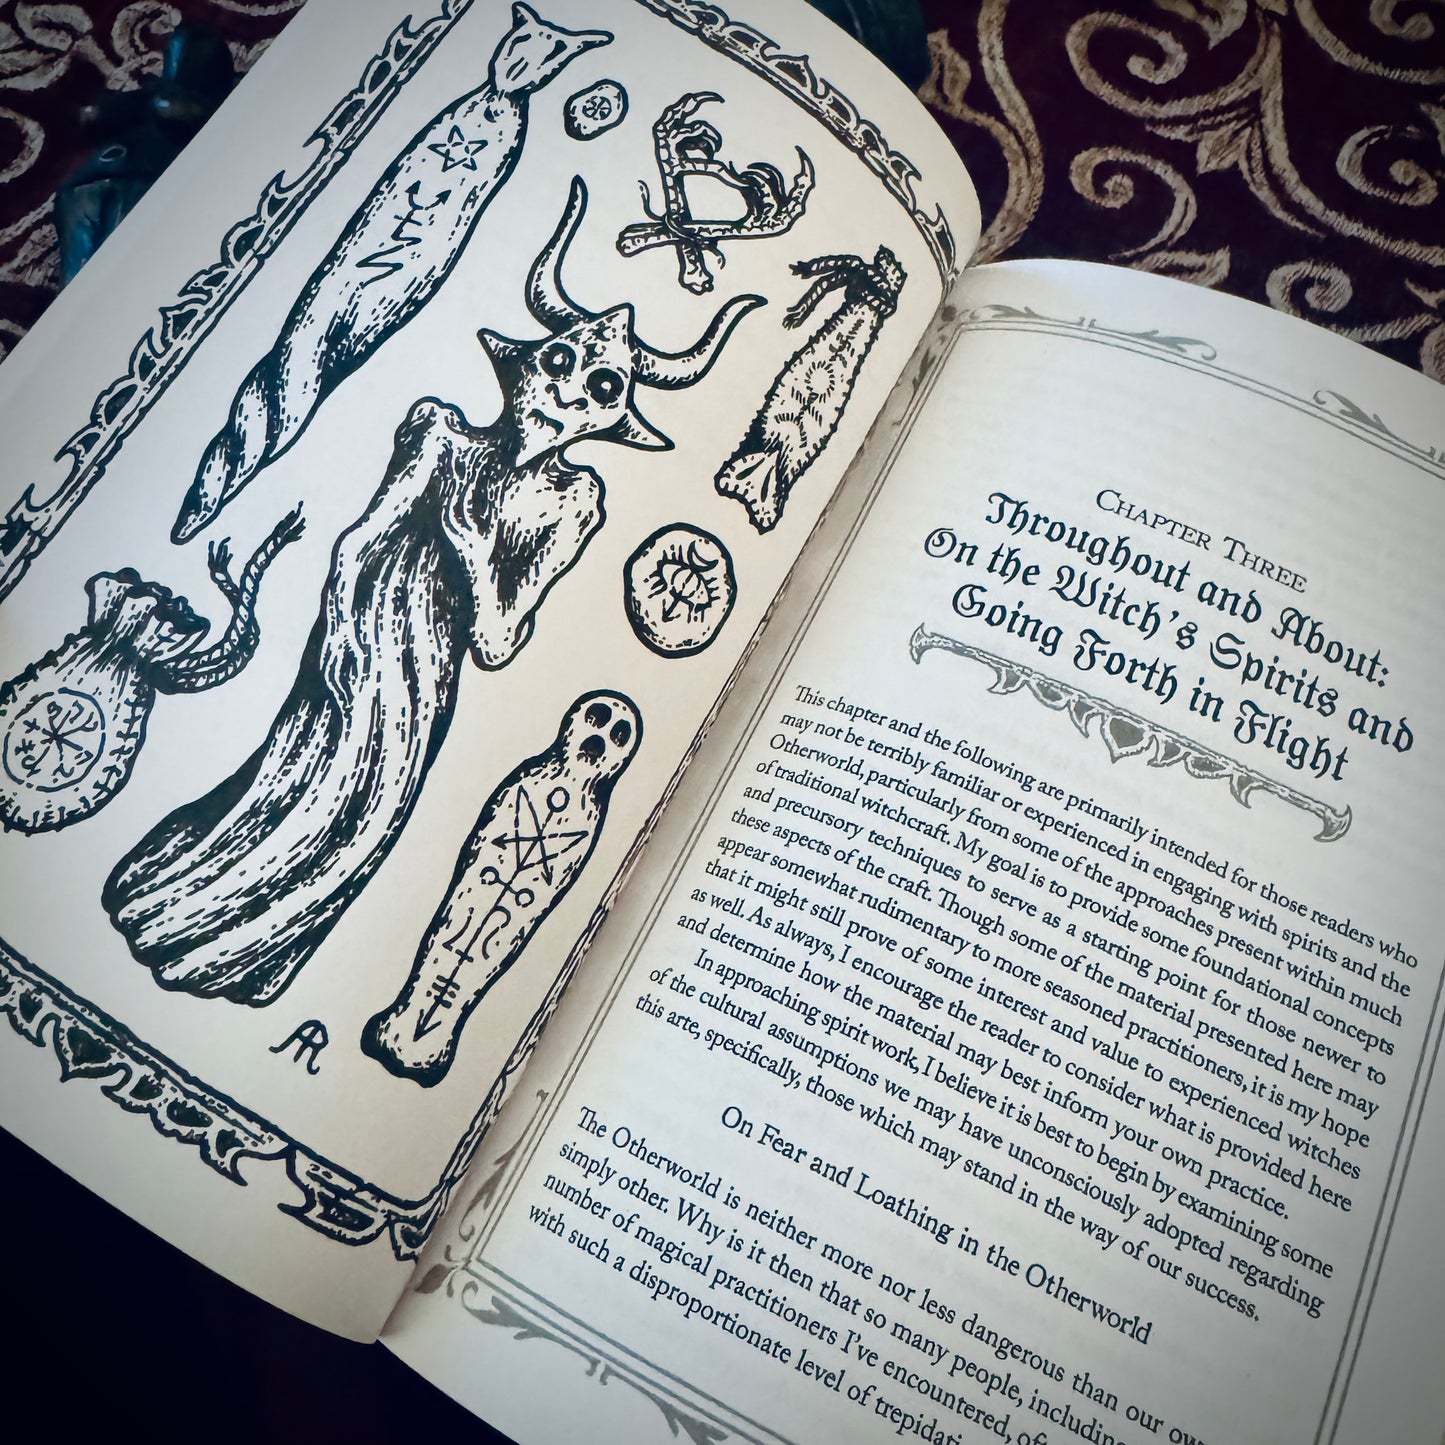 AR
CHAPTER THREE
Throughout and About:
On the Witch's Spirits and
Going Forth in Flight
This chapter and the following are primarily intended for those readers who
may not be terribly familiar or experienced in engaging with spirits and the
Otherworld, particularly from some of the approaches present within much
of traditional witchcraft. My goal is to provide some foundational concepts
and precursory techniques to serve as a starting point for those newer to
these aspects of the craft. Though some of the material presented here may
appear somewhat rudimentary to more seasoned practitioners, it is my hope
that it might still prove of some interest and value to experienced witches
as well. As always, I encourage the reader to consider what is provided here
and determine how the material may best inform your own practice.
In approaching spirit work, I believe it is best to begin by examining some
of the cultural assumptions we may have unconsciously adopted regarding
this arte, specifically, those which may stand in the way of our success.
On Fear and Loathing in the Otherworld
The Otherworld is neither more nor less dangerous than our
simply other. Why is it then that so many people,
number of magical practitioners I've encountered,
with such a disproportionate level of